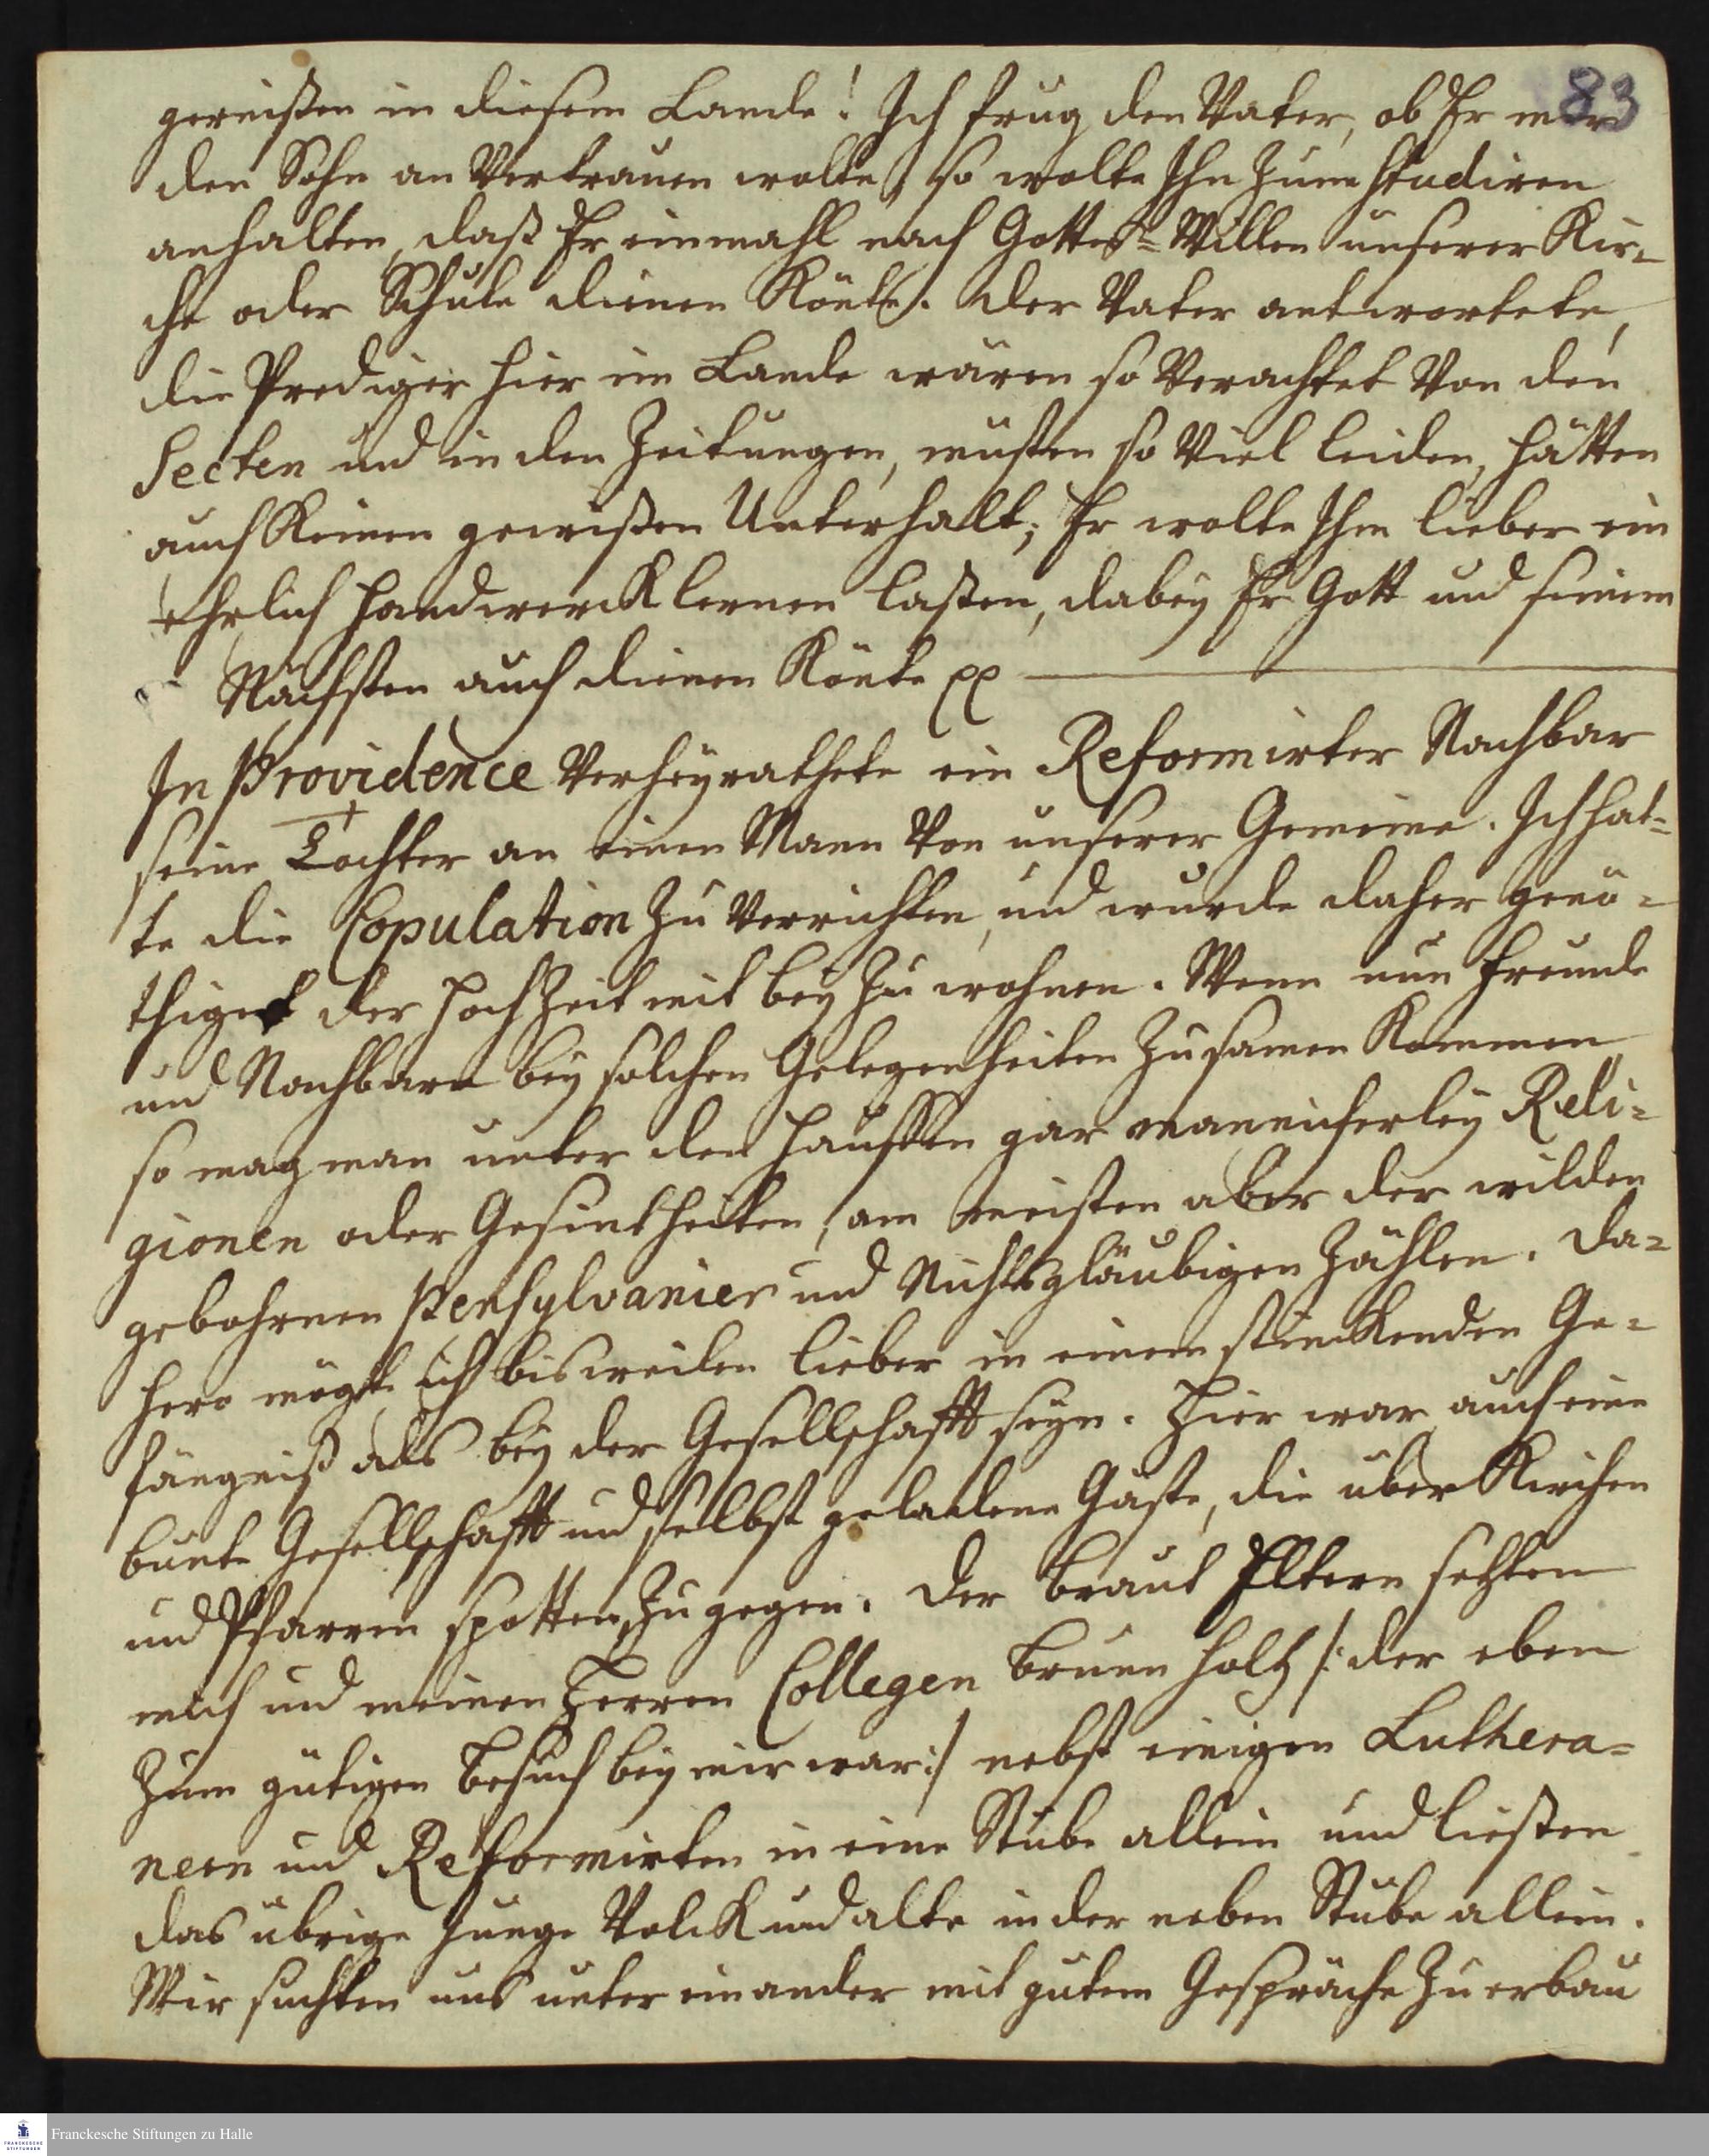 83
gereißen in diesem Lande! Ich frug den Vater, ob Er mir
den Sohn an Vertrauen wolte, so wolte Ihn zum studiren
anhalten, daß Er einmahl nach Gottes-Willen unserer Kir-
che oder Schule dienen Könte. Der Vater antwortete,
die Prediger hier im Lande wären so Verachtet Von den
Secten und in den Zeitungen, müsten so Viel leiden, hätten
auch Keinen gewißen Unterhalt; Er wolte Ihn lieber ein
ehrlich Handwerck lernen laßen, dabey Er Gott und seinem
Nächsten auch dienen Könte pp
In Providence Verheyrathete ein Reformirter Nachbar
seine Tochter an einen Mann Von unserer Gemeine. Ich hat-
te die Copulation zu Verrichten, und wurde daher genö-
thiget der Hochzeit mit bey zu wohnen. Wenn nun Freunde
und Nachbarn bey solchen Gelegenheiten zusamen Kommen,
so mag man unter den Hauffen gar mannicherley Reli-
gionen oder Gesintheiten, am meisten aber der wilden
gebohrnen Pensylvanier und Nichtsgläubigen zählen. Da-
hero mögte ich bisweilen lieber in einem stinckenden Ge-
fängniß als bey der Gesellschafft seyn. Hier war auch eine
bunte Gesellschafft und selbst geladene Gäste, die über Kirchen
und Pfarren spotten, zu gegen. Der Braut Eltern setzten
mich und meinen Herren Collegen Brunnholtz /: der eben
zum gütigen Besuch bey mir war :/ nebst einigen Luthera-
nern und Reformirten in eine Stube allein und ließen
das übrige Junge Volck und alte in der neben Stube allein.
Wir suchten uns unter einander mit gutem Gespräche zu erbau
Franckesche Stiftungen zu Halle